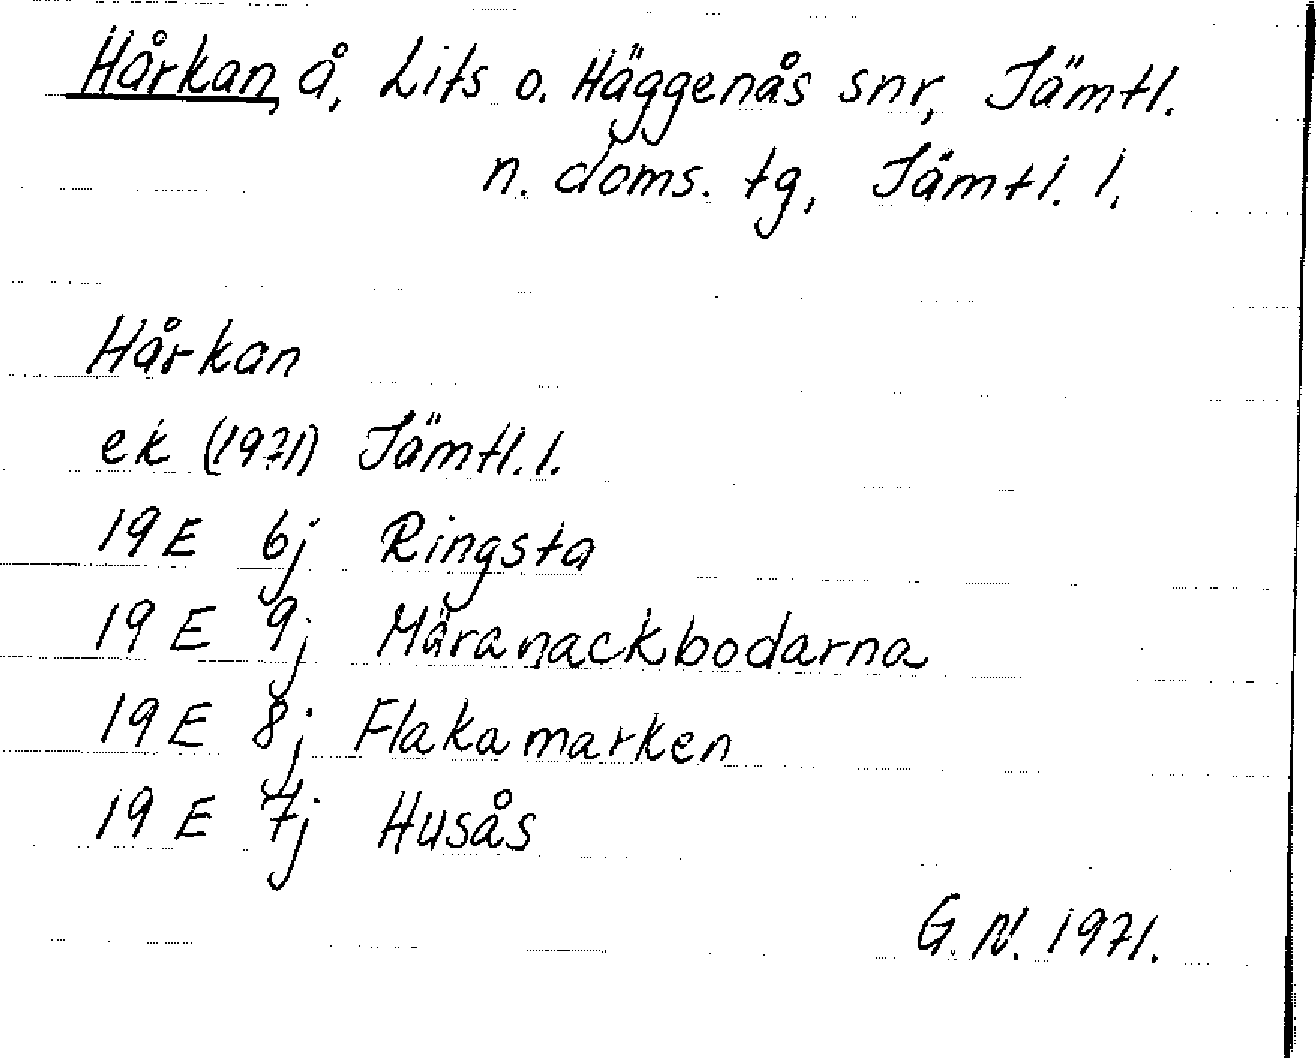 Hårkan, å, Lits o. Häggenås snr, Jämtl.
n. doms. tg, Jämtl. l.
Hårkan
ek (1971) Jämtl. l.
19 E 6j Ringsta
19 E 9j Märanackbodarna
19 E 8j Flakamarken
19 E 7j Husås
G. N. 1971.